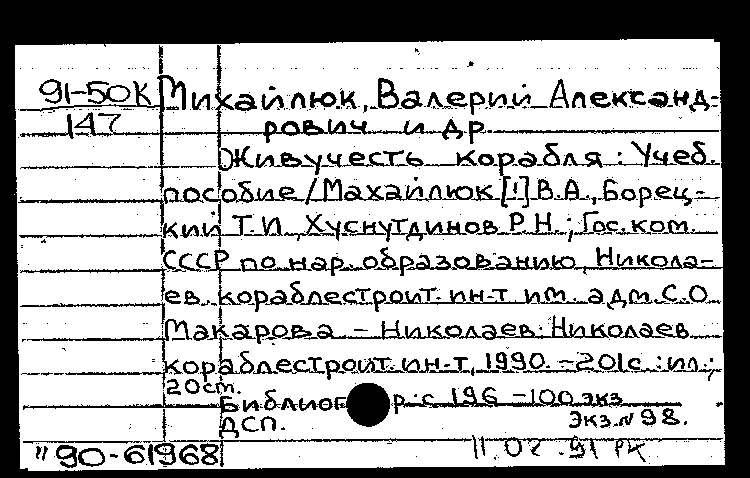 91-50К Михайлюк, Валерий Александ-
147 рович и др
Живучесть корабля: Учеб.
пособие / Махайлюк [!] В.А., Борец-
кий Т.И., Хуснутдинов Р.Н.; Гос. ком.
СССР по нар. образованию, Никола-
ев. кораблестроит. ин-т им. адм. С.О.
Макарова - Николаев: Николаев
кораблестроит. ин-т, 1990. - 201с.: ил.;
20см.
Библиог р: с 196 - 100 экз
ДСП. Экз. № 98.
"90-61968 11.02.91 РК